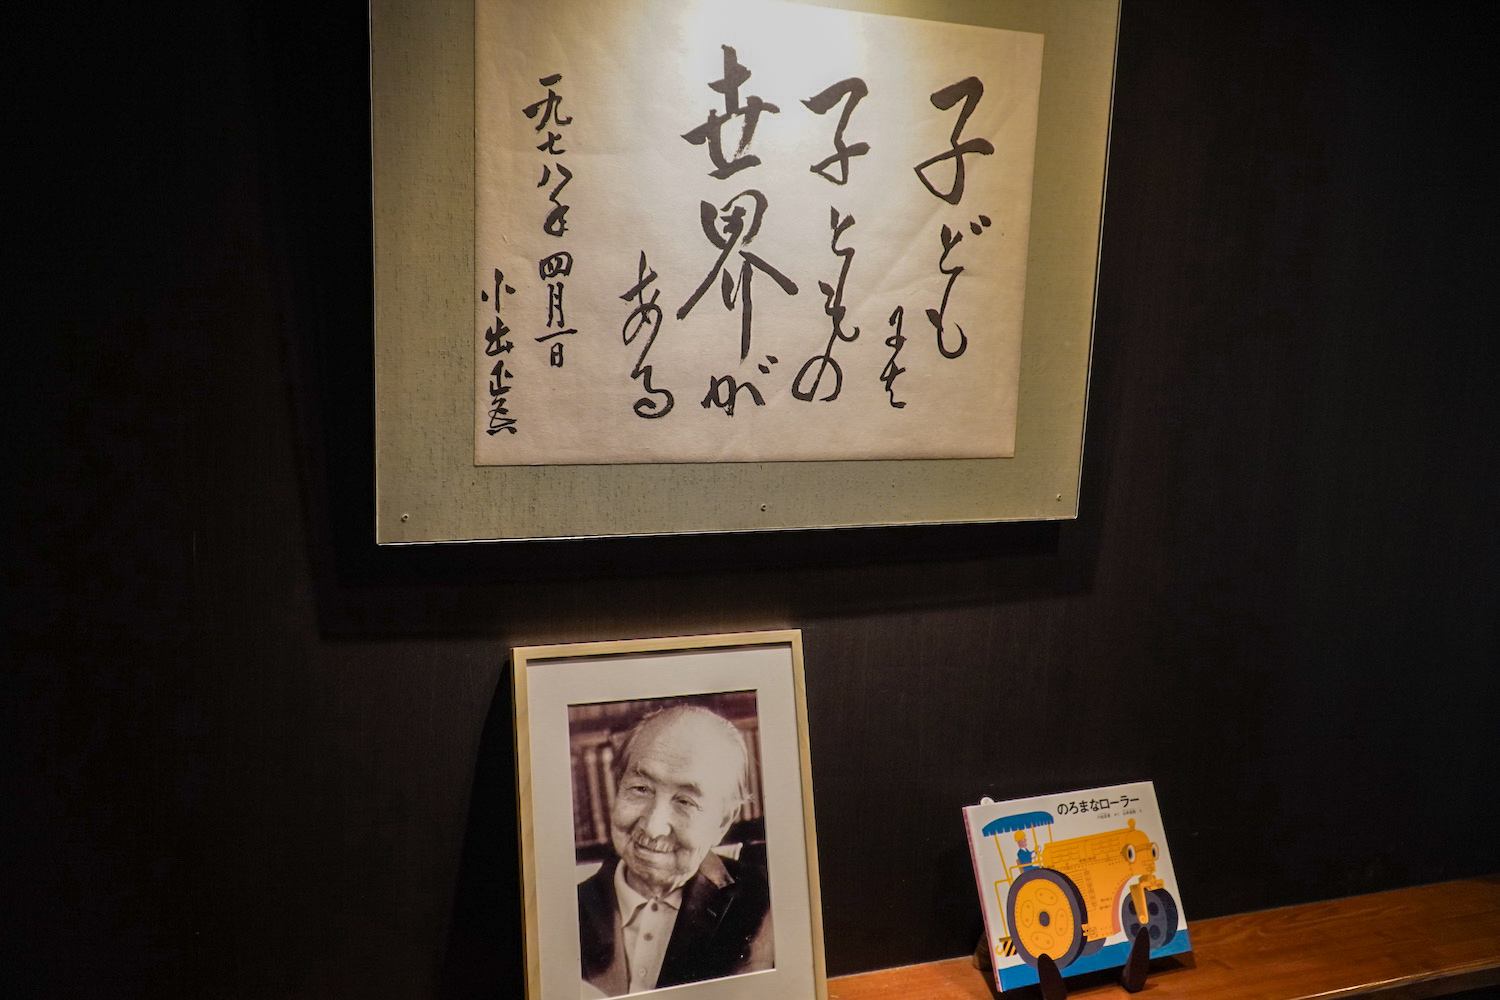 子ども
には
子ともの
世界が
ある
一九七八年四月一日
小出正吾
のろまなローラー